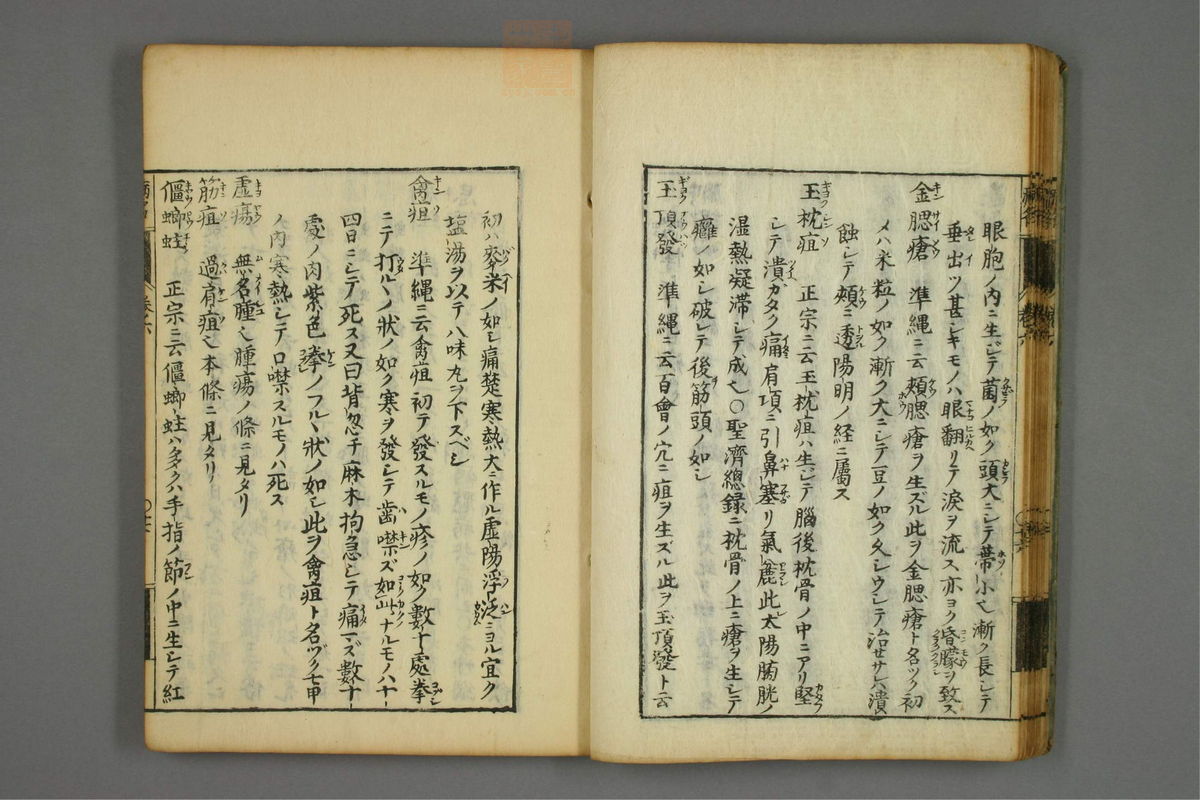 眼胞ノ内ニ生ジテ菌ノ如ク頭大ニシテ蒂小也漸ク長シテ
垂出ツ甚シキモノハ眼翻リテ涙ヲ流ス亦ヨク昏矇ヲ致ス
金腮瘡 準縄ニ云頬腮瘡ヲ生ズル此ヲ金腮瘡ト名ヅク初
メハ米粒ノ如ク漸ク大ニシテ豆ノ如ク久シウシテ治セサレバ潰
蝕シテ頬ニ透陽明ノ経ニ屬ス
玉枕疽 正宗ニ云玉枕疽ハ生ジテ腦後枕骨ノ中ニアリ堅
シテ潰ガタク痛肩項ニ引鼻塞リ氣麤此太陽膀胱ノ
湿熱凝滞シテ成也〇聖濟總錄ニ枕骨ノ上ニ瘡ヲ生シテ
癰ノ如シ破レテ後筋頭ノ如シ
玉頂發 準縄ニ云百會ノ穴ニ疽ヲ生ズル此ヲ玉頂發ト云
初ハ麥米ノ如シ痛楚寒熱大ニ作ル虚陽浮泛ニヨル宜ク
塩湯ヲ以テ八味丸ヲ下スベシ
禽疽 準縄ニ云禽疽初テ發スルモノ疹ノ如ク數十處拳
ニテ打ルヽノ狀ノ如ク寒ヲ發シテ齒噤ズ如此ナルモノハ十
四日ニシテ死ス又曰背忽チ麻木拘急シテ痛マズ數十
處ノ肉紫色拳ノフルヽ狀ノ如シ此ヲ禽疽ト名ヅク七甲
ノ内寒熱シテ口噤スルモノハ死ス
虚瘍 無名腫也腫瘍ノ條ニ見タリ
筋疽 過肩疽也本條ニ見タリ
傴螂蛀 正宗ニ云傴螂蛀ハ多クハ手指ノ節ノ中ニ生シテ紅